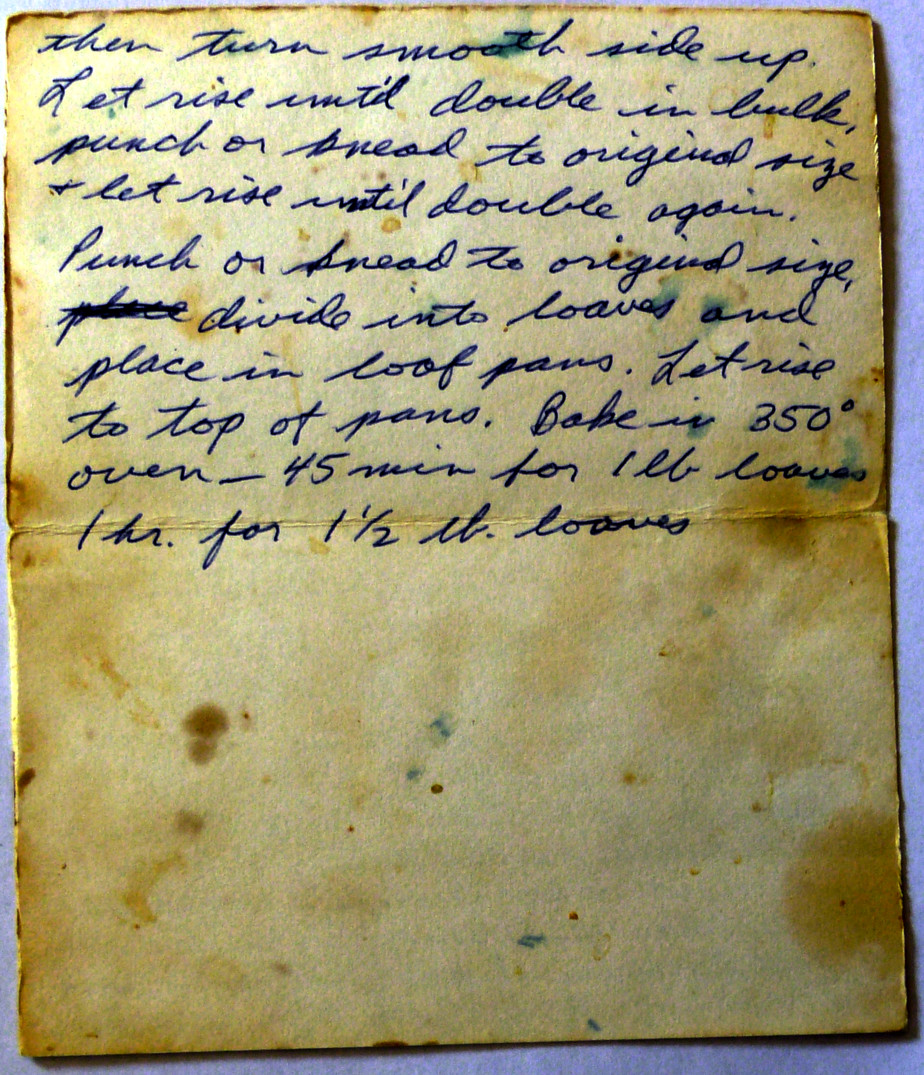 then turn smooth side up.
Let rise until double in bulk,
punch or knead to original size
+ let rise until double again.
Punch or knead to original size,
place divide into loaves and
place in loaf pans. Let rise
to top of pans. Bake in 350°
oven — 45 min for 1 lb loaves
1 hr. for 1 1/2 lb. loaves